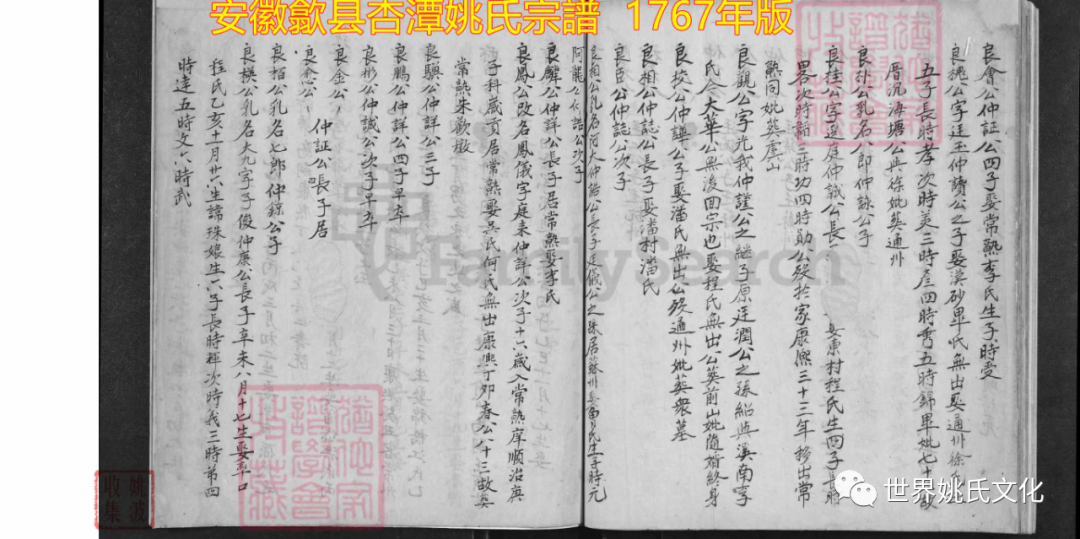 安徽歙县杏潭姚氏宗譜 1767年版
良會公仲証公四子娶常熟李氏生子時受
良挑公字廷玉仲讀公之子娶漢砂畢氏無出娶通州徐氏
五子長時孝次時英三時彥四時秀五時錦畢妣七十歲
厝沉海塘公與徐妣葬通州
良公乳名八郎仲諒公子
良桂公字廷仲誠公長娶東村程氏生四子長時
次時韶三時功四時勛公歿於家康熙三十三年移出常
熟同妣葬虞山
良觀公字光我仲謹公之繼子原廷潤公之孫紹與溪南李
氏今大華公無後回宗也娶程氏無出公葬前山妣隨婿終身
良棪公仲譁公子娶潘氏無出公歿通州妣葬眾墓
良相公仲誌公長子娶潘村潘氏
良臣公仲誌公次子
良相公乳名阿大仲誥公長子廷儀公之孫居蘇州氏生子時元
阿龍公仲誥公次子
良麟公仲詳公長子居常熟娶李氏
良鳳公改名鳳儀字庭來仲詳公次子十六歲入常熟庠順治庚
子科歲貢居常熟娶吳氏何氏無出康熙丁卯春公八十三故葬
常熟朱歡墩
良驥公仲詳公三子
良鵬公仲詳公四子早卒
良彬公仲誠公次子早卒
良金公
良公仲証公長子居
良柏公乳名七郎仲錄公子
良橫公乳名大九字子俊仲庚公長子辛未八月十七生娶
程氏乙亥十一月廿六生諱珠娘生六子長時輝次時義三時第四
時達五時文六時武
FamilySearch
姚波
收集
世界姚氏文化